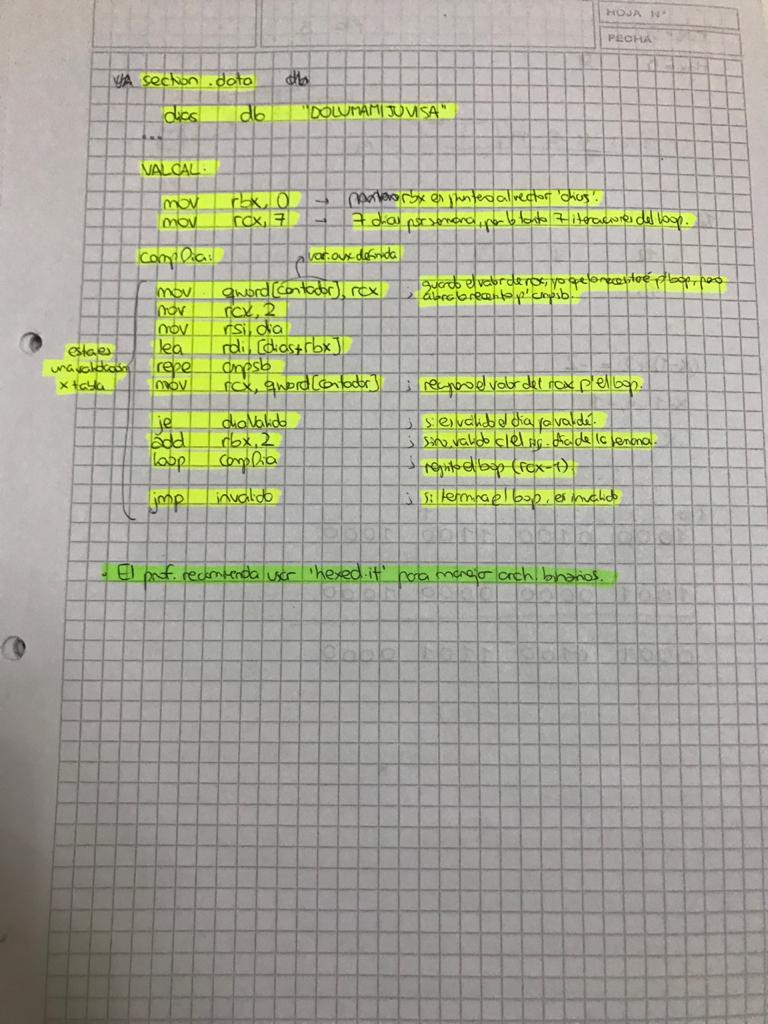 HOJA N°
FECHA
section .data db
dias db "DOLUMAMIJUVISA"
...
VALCAL:
mov rbx, 0 → rbx es puntero al vector 'dias'.
mov rcx, 7 → 7 dias por semana, por lo tanto 7 iteraciones del loop.
compDia:
var. aux definida
mov qword[contador], rcx ; guardo el valor de rcx, ya que lo necesitaré p'loop, pero
ahora lo necesito p' cmpsb.
mov rcx, 2
mov rsi, dia
lea rdi, [dias+rbx]
esta es
una validación
x tabla
repe cmpsb
mov rcx, qword[contador] ; recupero el valor del rcx p'el loop.
je diaValido ; si es válido el día, ya validé.
add rbx, 2 ; sino, valido c/el sig. día de la semana.
loop compDia ; repito el loop (rcx-1).
jmp invalido ; si termina el loop, es inválido
· El prof. recomienda usar 'hexed.it' para manejar arch. binarios.